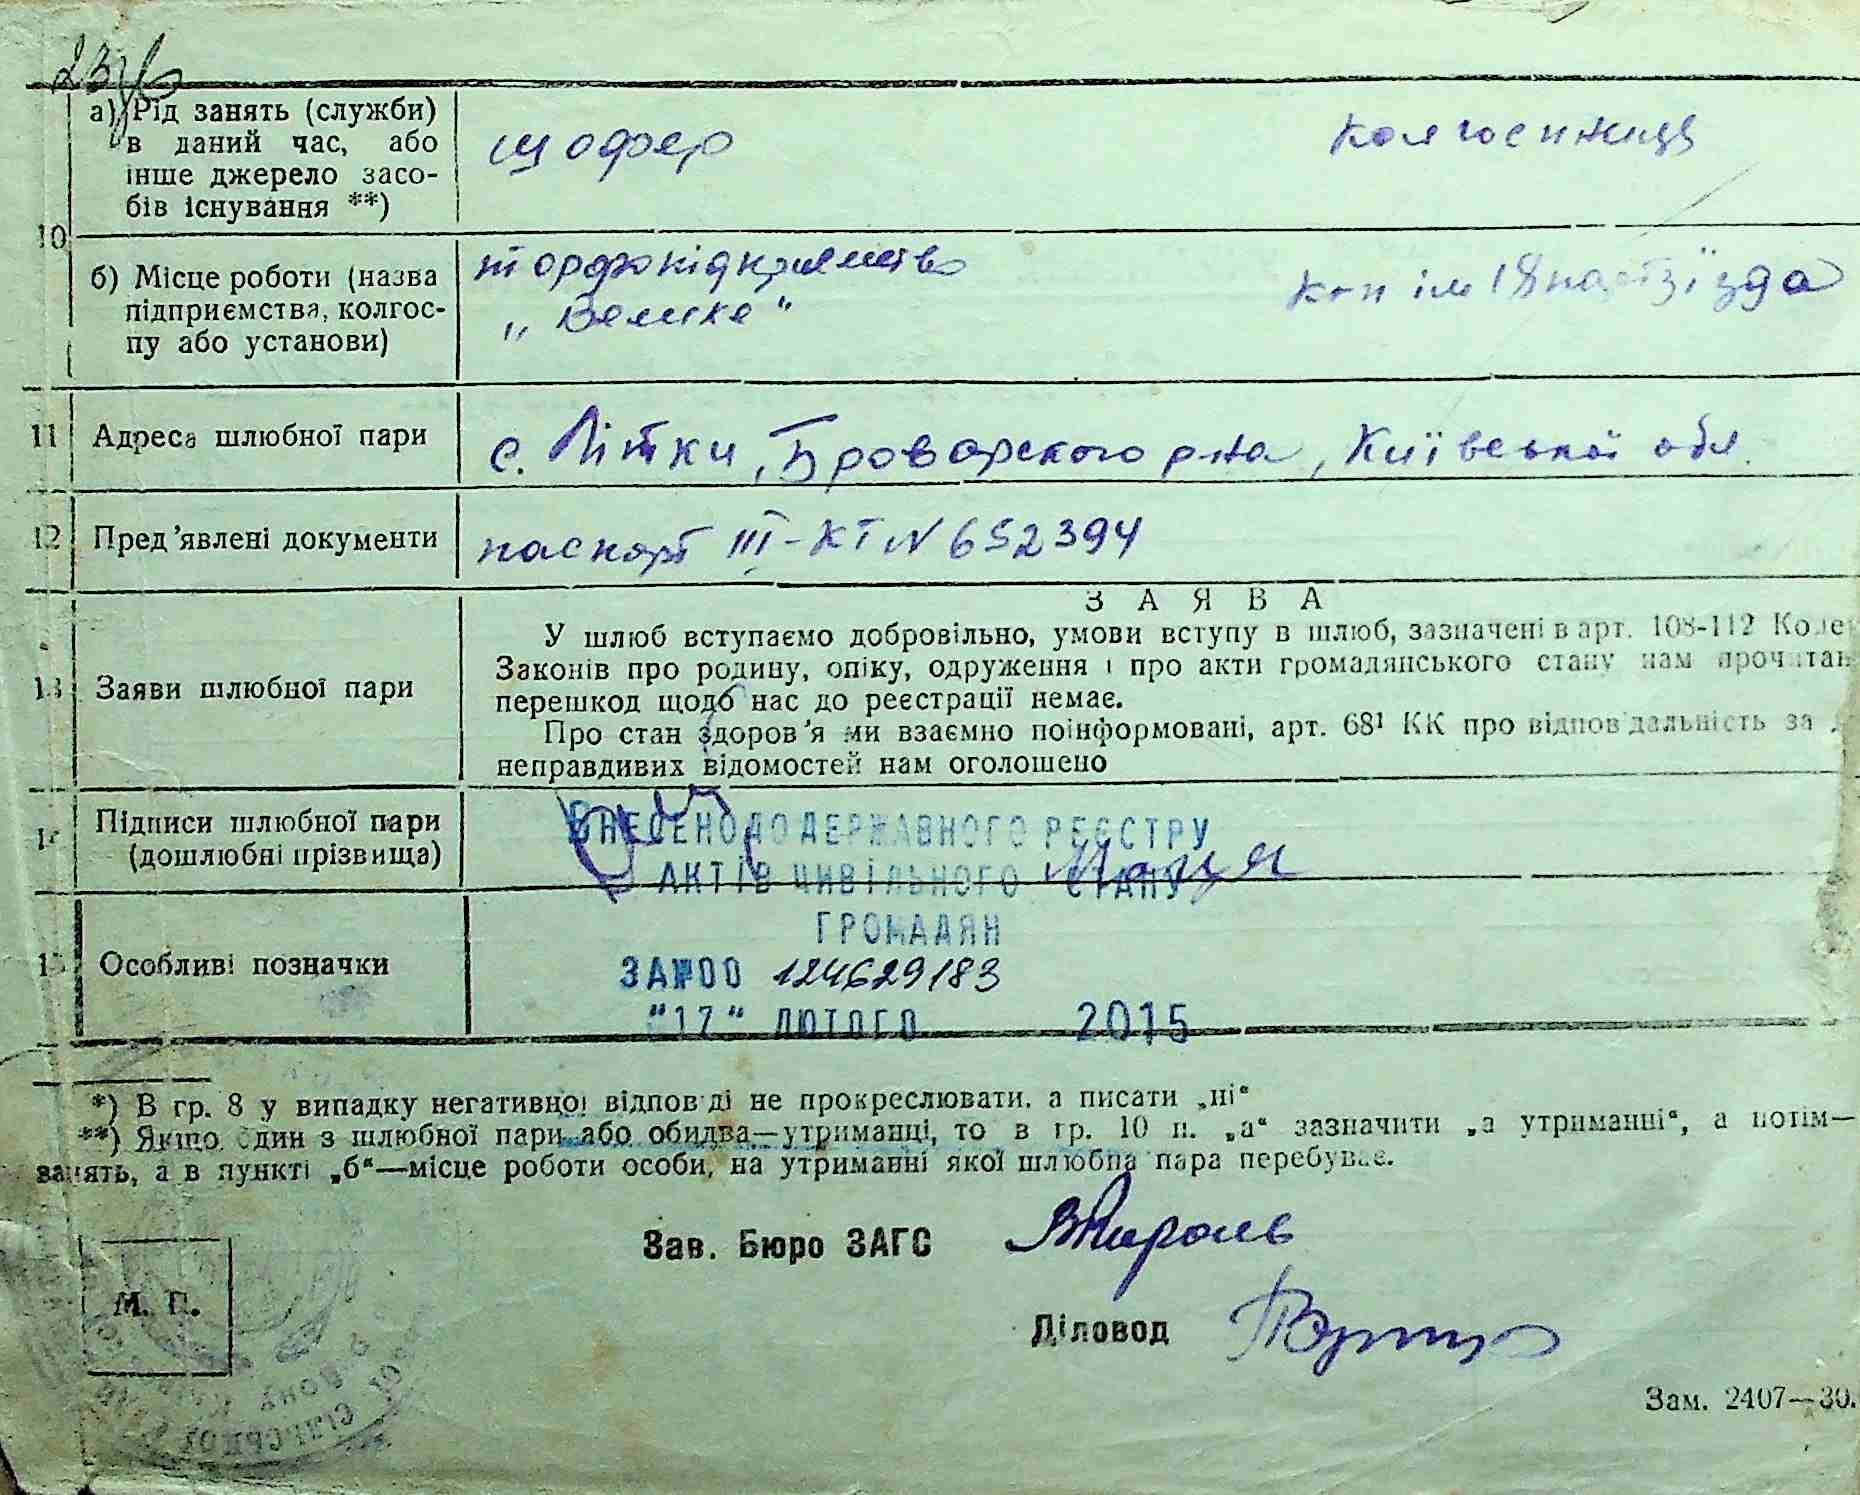 а) Рід занять (служби)
в даний час, або
інше джерело засо-
бів існування **)
шофер
колгоспниця
10
б) Місце роботи (назва
підприємства, колгос-
пу або установи)
торфопідприємство
"Велике"
кол ім 18 партз'їзда
11 Адреса шлюбної пари
с. Літки, Броварского р-на, Київської обл.
12 Пред'явлені документи
паспорт III-КТ N 652394
13 Заяви шлюбної пари
ЗАЯВА
У шлюб вступаємо добровільно, умови вступу в шлюб, зазначені в арт. 108-112 Коде
Законів про родину, опіку, одруження і про акти громадянського стану нам прочитан
перешкод щодо нас до реєстрації немає.
Про стан здоров'я ми взаємно поінформовані, арт. 68¹ КК про відповідальність за
неправдивих відомостей нам оголошено
14 Підписи шлюбної пари
(дошлюбні прізвища)
ВНЕСЕНО ДО ДЕРЖАВНОГО РЕЄСТРУ
АКТІВ ЦИВІЛЬНОГО СТАНУ
ГРОМАДЯН
15 Особливі позначки
ЗА №00 124629183
"17" ЛЮТОГО 2015
*) В гр. 8 у випадку негативної відповіді не прокреслювати, а писати „ні"
**) Якщо один з шлюбної пари або обидва—утриманці, то в гр. 10 п. „а" зазначити „а утриманні", а потім—
занять, а в пункті „б"—місце роботи особи, на утриманні якої шлюбна пара перебуває.
Зав. Бюро ЗАГС
Діловод
М. П.
Зам. 2407—30.